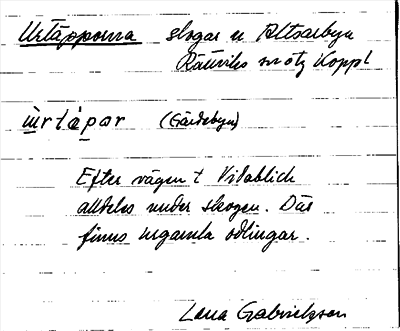 Urtäpporna skogar n Altsarbyn
Rättviks sn
ùrtàpar (Gärdebyn)
Efter vägen t Vidablick
alldeles under skogen. Där
finns urgamla odlingar.
Lena Gabrielsson